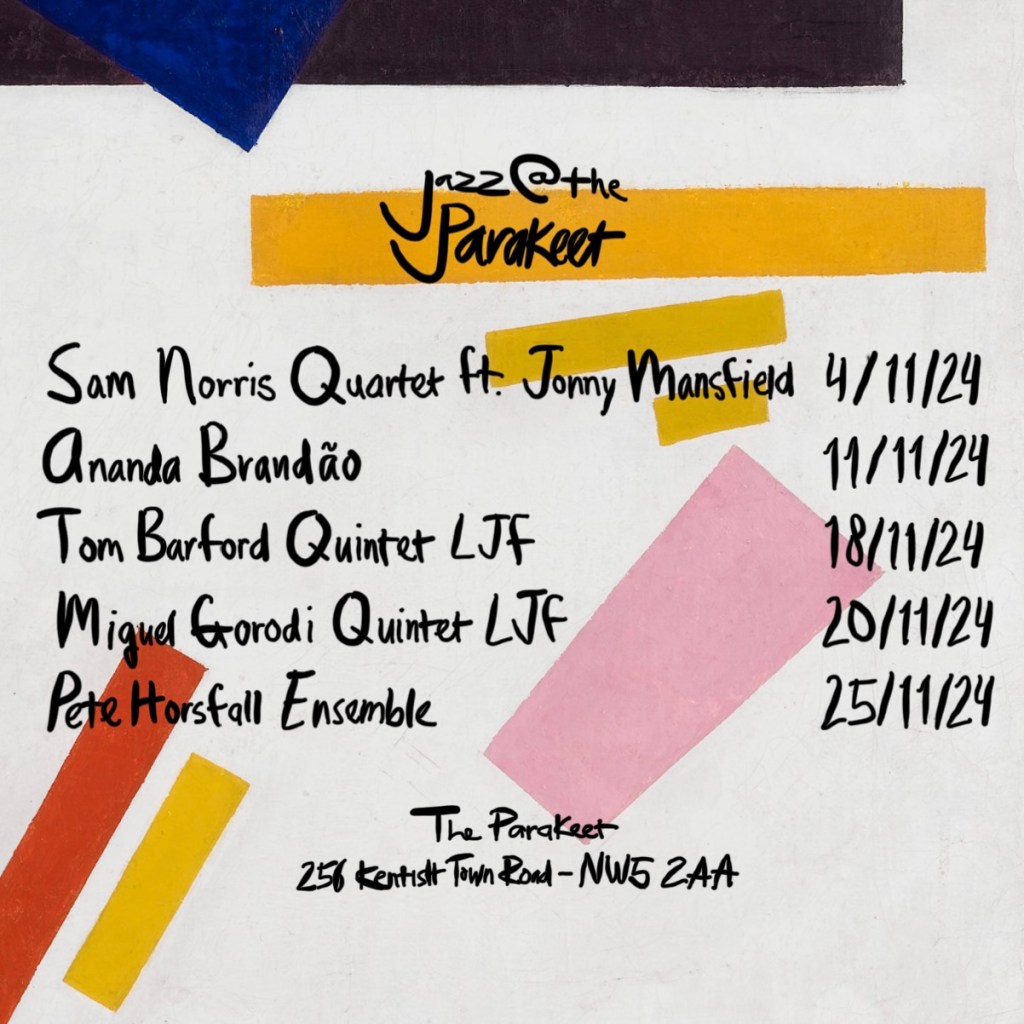 Jazz@the
Parakeet
Sam Norris Quartet ft. Jonny Mansfield 4/11/24
Ananda Brandão 11/11/24
Tom Barford Quintet LJF 18/11/24
Miguel Gorodi Quintet LJF 20/11/24
Pete Horsfall Ensemble 25/11/24
The Parakeet
256 Kentish Town Road - NW5 2AA